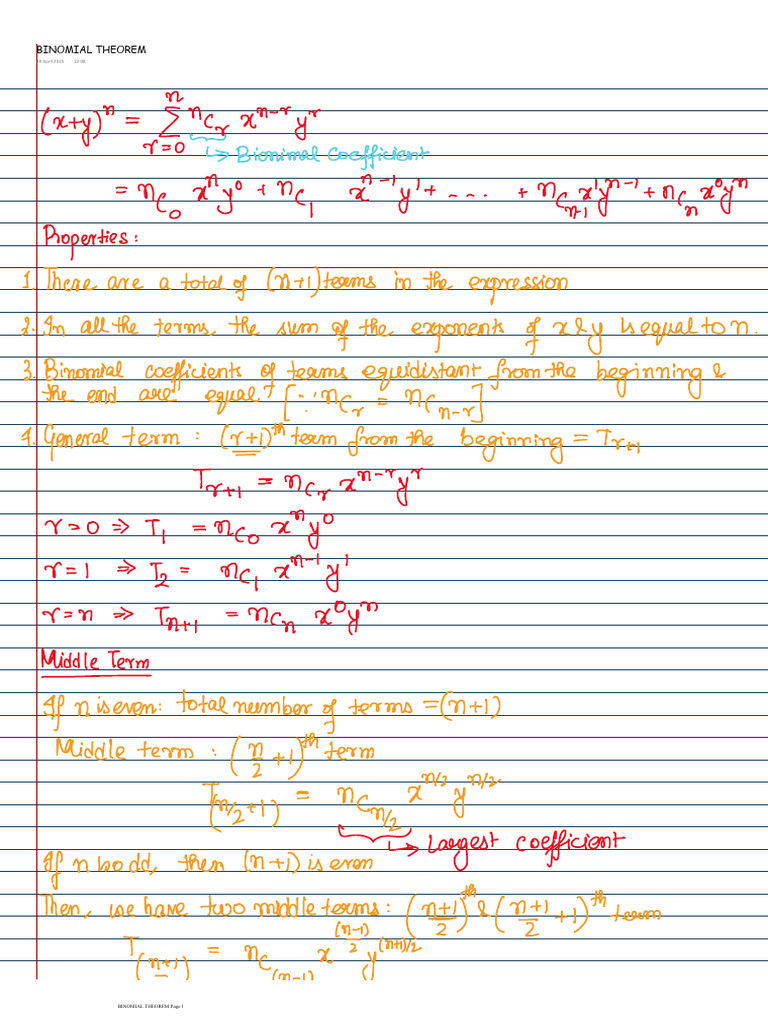 BINOMIAL THEOREM
(x+y)^n = Σ_{r=0}^{n} nC_r x^{n-r} y^r
↳ Bionimal Coefficient
= nC_0 x^n y^0 + nC_1 x^{n-1} y^1 + .... + nC_{n-1} x^1 y^{n-1} + nC_n x^0 y^n
Properties:
1. There are a total of (n+1) terms in the expression
2. In all the terms, the sum of the exponents of x & y is equal to n.
3. Binomial coefficients of terms equidistant from the beginning &
the end are equal. [∵ nC_r = nC_{n-r}]
4. General term : (r+1)^th term from the beginning = T_{r+1}
T_{r+1} = nC_r x^{n-r} y^r
r=0 ⇒ T_1 = nC_0 x^n y^0
r=1 ⇒ T_2 = nC_1 x^{n-1} y^1
r=n ⇒ T_{n+1} = nC_n x^0 y^n
Middle Term
If n is even: total number of terms = (n+1)
Middle term : (n/2 + 1)^th term
T_{(n/2+1)} = nC_{n/2} x^{n/2} y^{n/2}
↳ Largest coefficient
If n is odd, then (n+1) is even
Then, we have two middle terms: ((n+1)/2)^th & ((n+1)/2 + 1)^th term
T_{(n+1)} = nC_{(n-1)} x^{(n-1)/2} y^{(n+1)/2}
BINOMIAL THEOREM Page 1